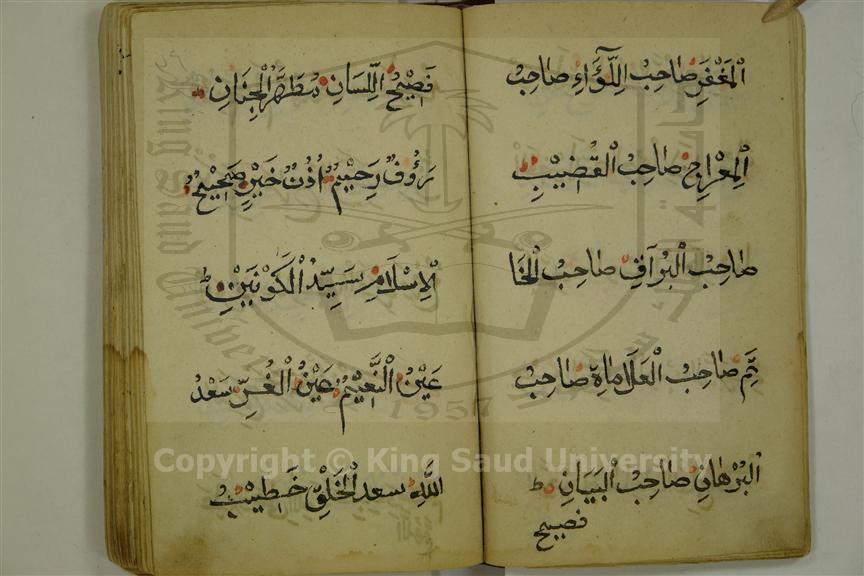 الْمَغْفَرِ صَاحِبُ اللِّوَآءِ صَاحِبُ
الْمِعْرَاجِ صَاحِبُ الْقَضِيْبِ
صَاحِبُ الْبُرَاقِ صَاحِبُ الْخَا
تَمِ صَاحِبُ الْعَلَامَاةِ صَاحِبُ
الْبُرْهَانِ صَاحِبُ الْبَيَانِ
فصيح
فَصِيْحُ اللِّسَانِ مُطَهَّرُ الْجِنَانِ
رَؤُفٌ رَحِيْمٌ اُذُنُ خَيْرٍ صَحِيْحُ
الْاِسْلَامِ سَيِّدُ الْكَوْنَيْنِ
عَيْنُ النَّعِيْمِ عَيْنُ الْغُرِّ سَعْدُ
اللّٰهِ سعد الْخَلْقِ خَطِيْبُ
Copyright © King Saud University
1957